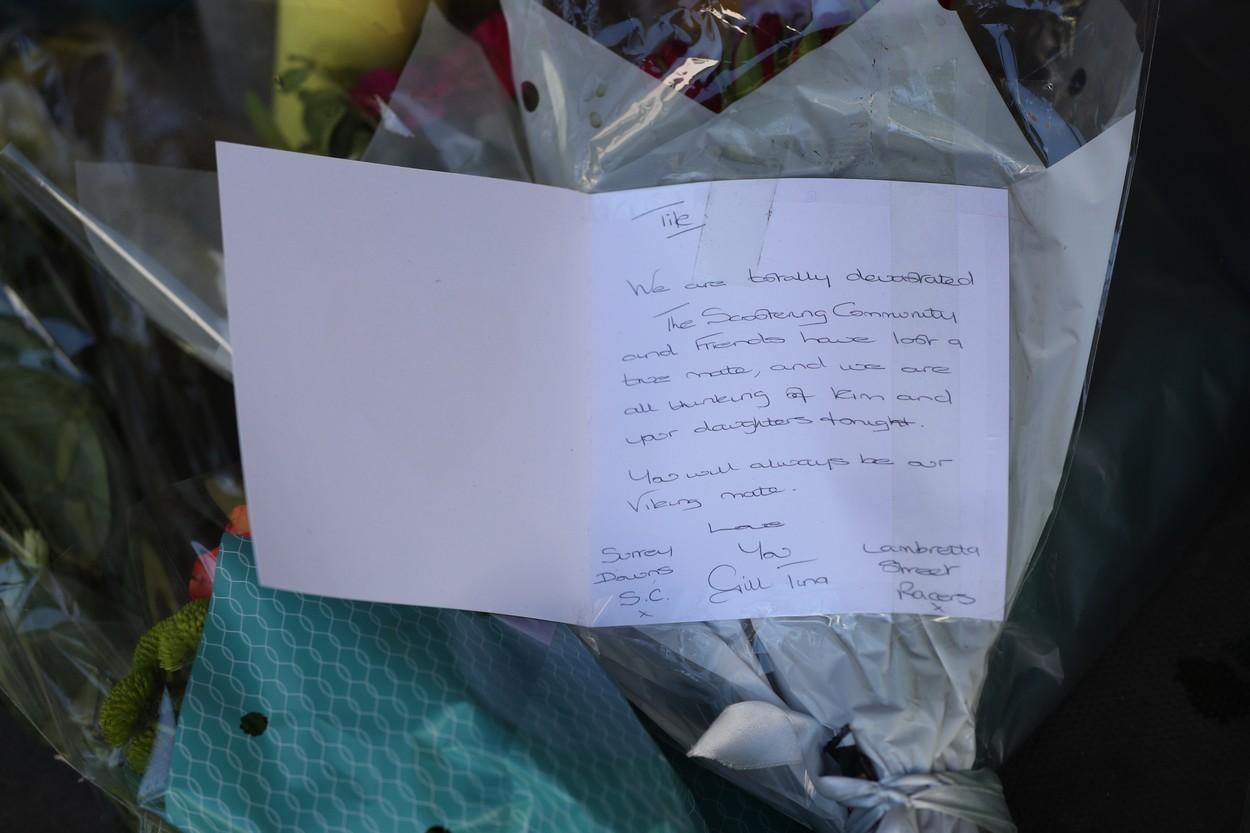 Tik
We are totally devastated
The Scootering Community
and Friends have lost a
true mate, and we are
all thinking of Kim and
your daughters tonight.
You will always be our
Viking mate.
Love
Surrey
Downs
S.C.
x
You
Gill Tina
Lambretta
Street
Racers
x